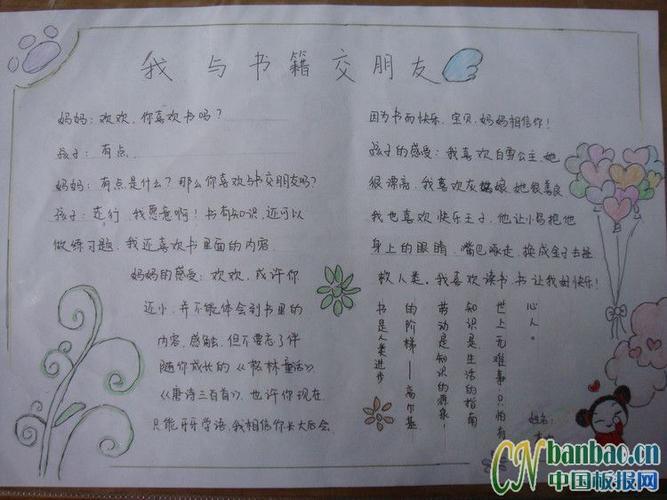 我与书籍交朋友
妈妈：欢欢，你喜欢书吗？
孩子：有点。
妈妈：有点是什么？那么你喜欢与书交朋友吗？
孩子：还行，我愿意啊！书有知识，还可以
做练习题，我还喜欢书里面的内容。
妈妈的感受：欢欢，或许你
还小，并不能体会到书里的
内容，感触，但不要忘了伴
随你成长的《格林童话》
《唐诗三百首》，也许你现在
只能牙牙学语，我相信你长大后会
因为书而快乐，宝贝，妈妈相信你！
孩子的感受：我喜欢白雪公主，她
很漂亮，我喜欢灰姑娘，她很善良
我也喜欢快乐王子，他让小鸟把他
身上的眼睛，嘴巴啄走，换成金子去拯
救人类。我喜欢读书，书让我好快乐！
书是人类进步
的阶梯——高尔基
劳动是知识的源泉！
知识是生活的指南
世上无难事，只怕有
心人。
姓名：
CNbanbao.cn
中国板报网